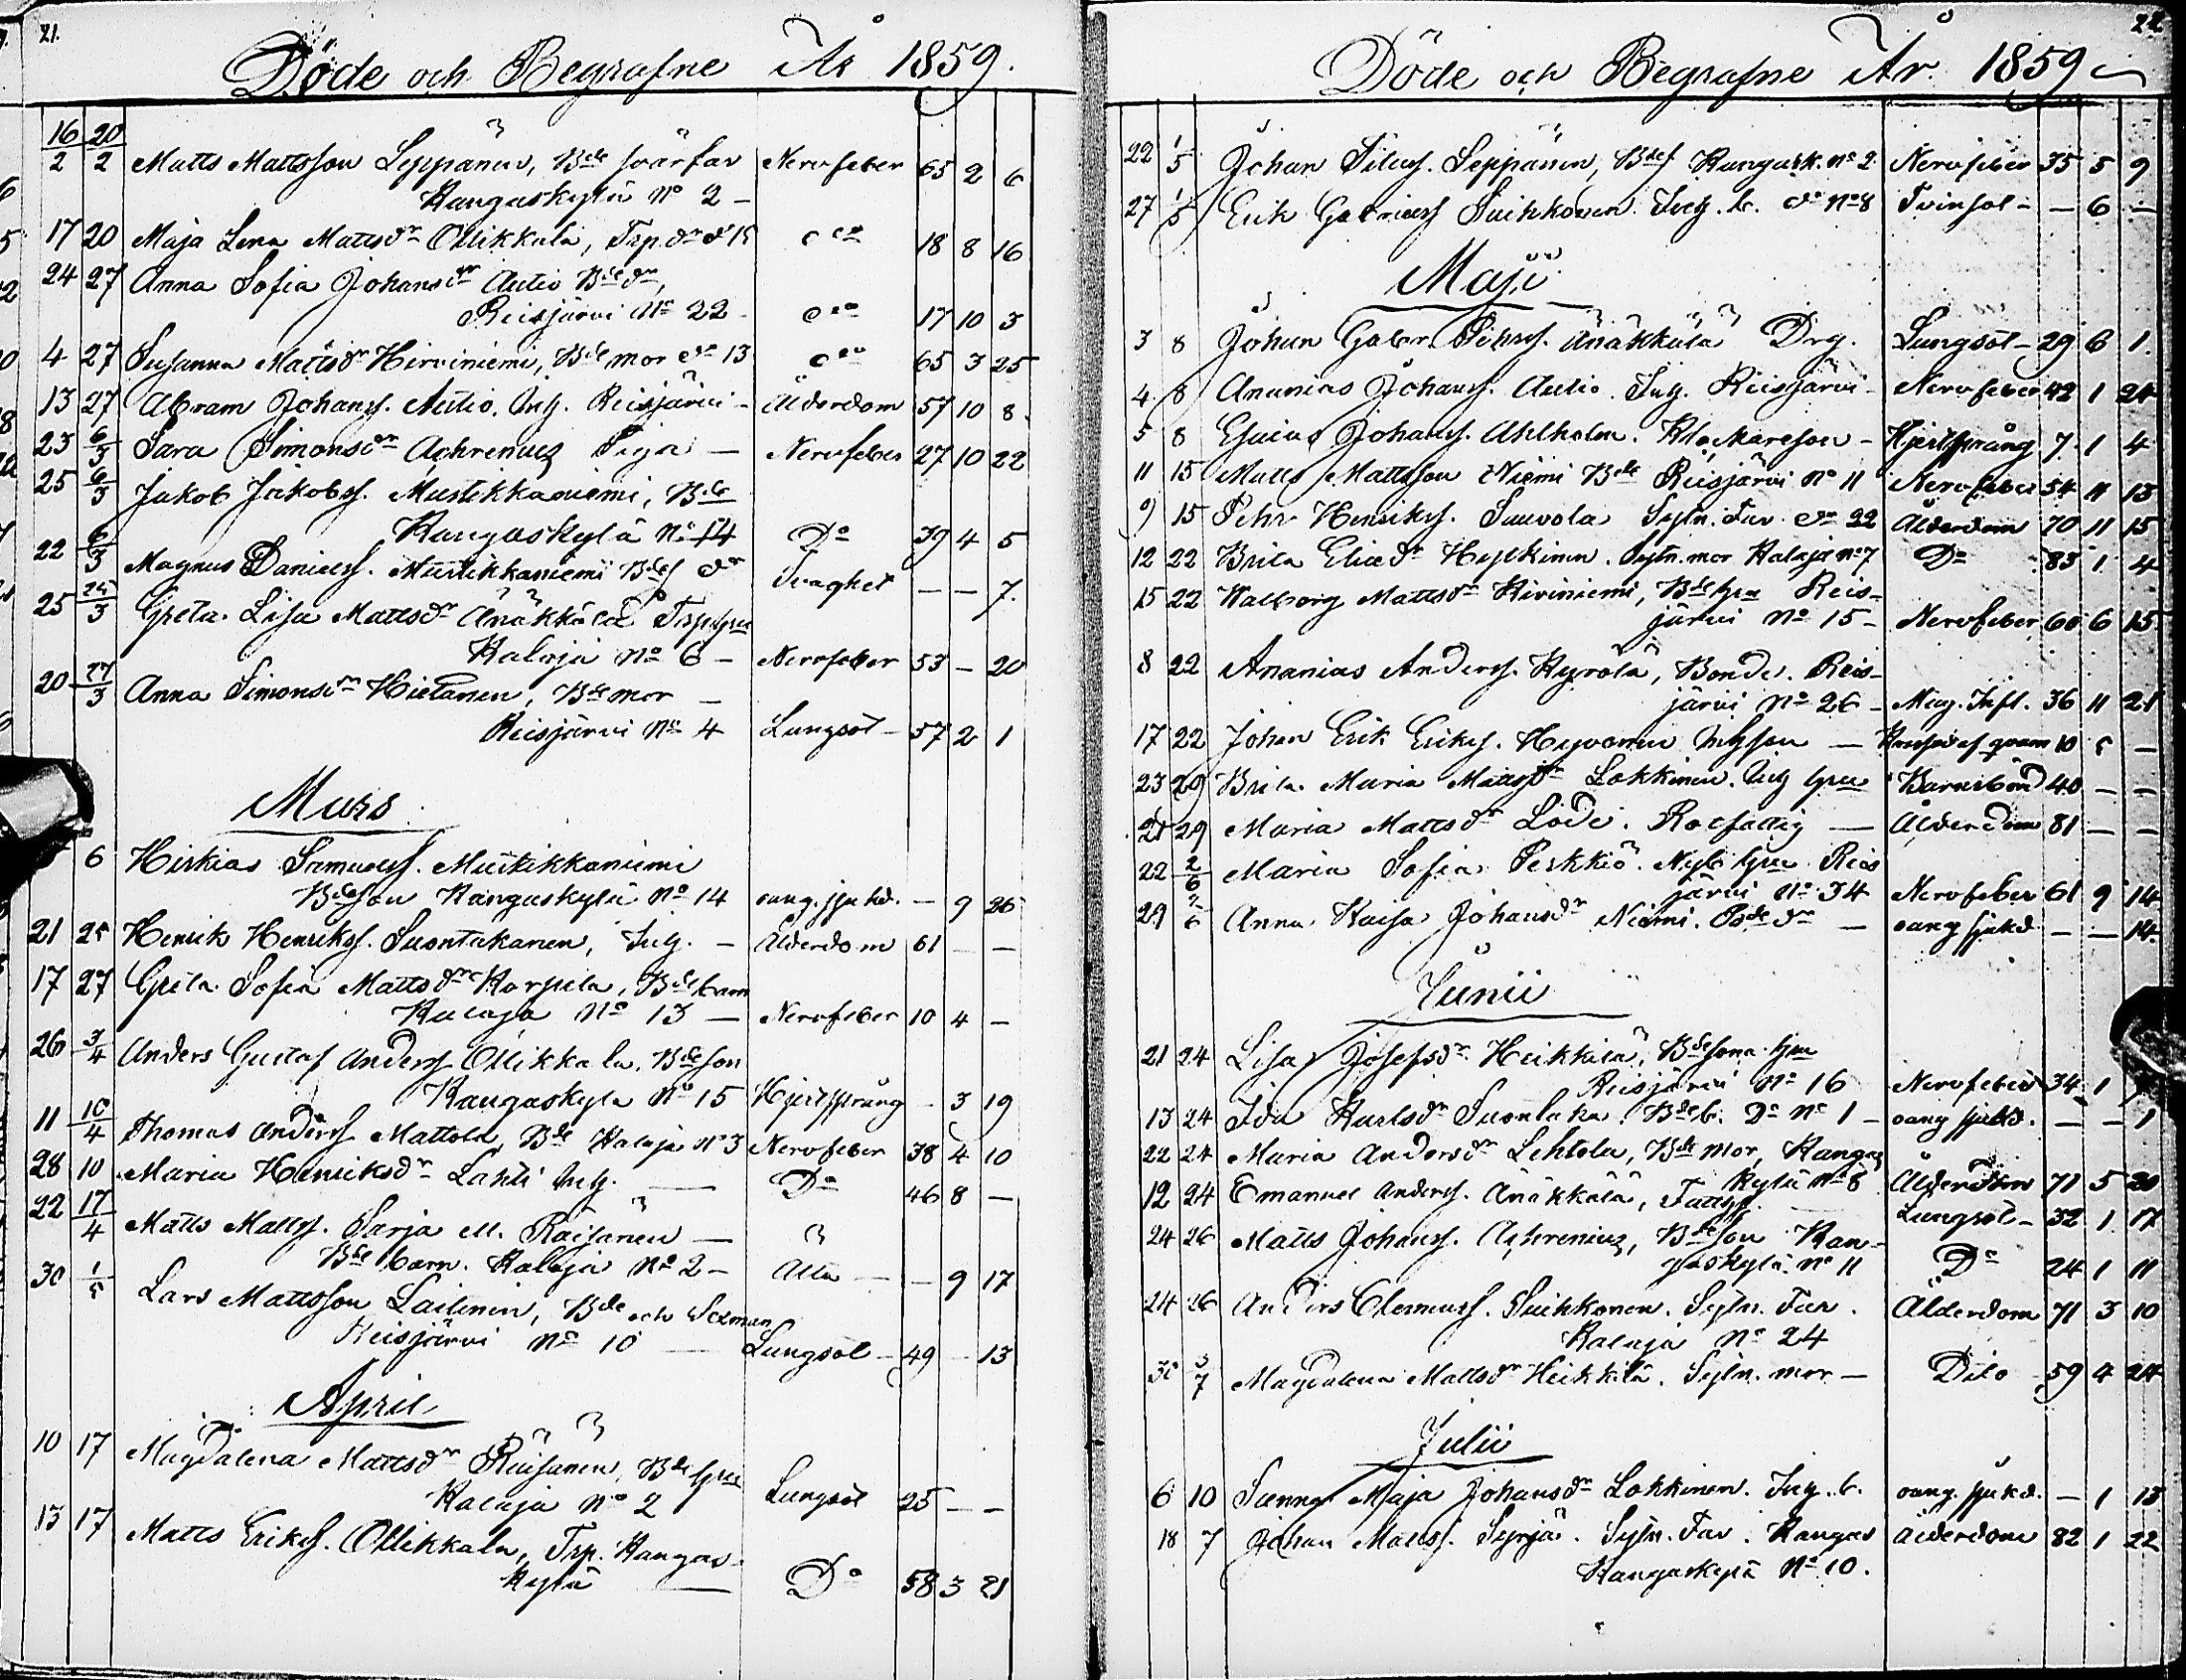 21.
Döde och Begrafne År 1859.
16/2 20/2 Matts Mattsson Leppänen, Bde svärfar Nervfeber 65 2 6
Kangaskylä No 2 -
17 20 Maja Lena Mattsdr Ollikkala, Trp. dr do 15 do 18 8 16
24 27 Anna Sofia Johansdr Autio Bde dr,
Reisjärvi No 22 - do 17 10 3
4 27 Susanna Mattsdr Hirviniemi, Bde mor do 13 do 65 3 25
13 27 Abram Johanss. Autio, Inh. Reisjärvi - Ålderdom 57 10 8.
23 6/3 Sara Simonsdr Achrenius Piga — Nervfeber 27 10 22
25 6/3 Jakob Jakobss. Mustikkaniemi, Bde
Kangaskylä No 14 Do 39 4 5
22 6/3 Magnus Daniess. Mustikkaniemi Bdes do Svaghet — — 7.
25 25/3 Greta Lisa Mattsdr Änäkkälä Trphu
Kalaja No 6 - Nervfeber 53 - 20
20 27/3 Anna Simonsdr Hietanen, Bde mor —
Reisjärvi No 4 Lungsot - 57 2 1
Mars
6 Hiskias Samuelss. Mustikkaniemi
Bdeson Kangaskylä No 14 oang. sjukd. - 9 26
21 25 Henrik Henrikss. Suontakanen, Inh. - Ålderdom 61 — —
17 27 Greta Sofia Mattsdr Korpela, Bdebarn
Kalaja No 13 — Nervfeber 10 4 -
26 3/4 Anders Gustaf Anderss Ollikkala, Bdeson
Kangaskylä No 15 Hjertsprång - 3 19
11 10/4 Thomas Anderss Mattola, Bde Kalaja No 3 Nervfeber 38 4 10
28 10 Maria Henriksdr Lahti Inh. — Do 46 8 —
22 17/4 Matts Mattss. Sarja M. Räisänen —
Bde barn. Kalaja No 2 - — 9 17
30 1/5 Lars Mattsson Laitinen, Bde och Sexman
Reisjärvi No 10 — Lungsot - 49 - 13
April
10 17 Magdalena Mattsdr Räisänen, Bde hu
Kalaja No 2 Lungsot 25 — —
13 17 Matts Erikss. Ollikkala, Trp. Kangas-
kylä — Do 58 3 21
22
Döde och Begrafne År 1859
22 1/5 Johan Silass. Leppänen, Bdes Kangask. No 2 Nervfeber 35 5 9
27 1/5 Erik Gabrielss Puihkonen. Inh. b. do No 8 Tvinsot - — 6 —
Maji
3 8 Johan Gabr. Pehrss. Änäkkälä Drg. Lungsot - 29 6 1.
4 8 Ananias Johanss. Autio. Inh. Reisjärvi - Nervfeber 42 1 24
5 8 Esaias Johanss. Ahlholm. Hjertsprång 7 1 4
11 15 Matts Mattsson Niemi Bde Reisjärvi No 11 Nervfeber 54 11 13
9 15 Pehr Henrikss. Sauvola Sytn. Far do 22 Ålderdom 70 11 15
12 22 Brita Eliedr Hylkinen. Sytn. mor Kalaja No 7 Do 83 1 4
15 22 Walborg Mattsdr Kiviniemi, Bdehu Reis-
järvi No 15 - Nervfeber 60 6 15
8 22 Ananias Anderss. Kyrölä, Bonde. Reis-
järvi No 26 - Mag. Infl. 36 11 21
17 22 Johan Erik Erikss. Hyvönen Inhson — 10 5 —
23 29 Brita Maria Mattsdr Lokkinen. Inh hu Barnsbörd 40 — —
21 29 Maria Mattsdr Löde. Rotfattig — Ålderdom 81 — —
22 2/6 Maria Sofia Perkkiö. Nyb hu Reis
järvi No 34 Nervfeber 61 9 14
29 2/6 Anna Kaisa Johansdr Niemi. Bde dr — oang sjukd — — 14.
Junii
21 24 Lisa Josefsdr Heikkilä, Bdesona hu
Reisjärvi No 16 Nervfeber 34 1
13 24 Ida Karlsdr Suontaka. Bdeb. Do No 1 - oang sjukd. — — 1
22 24 Maria Andersdr Lehtola, Bde mor, Kangas
kylä No 8 Ålderdom 71 5 20
12 24 Emanuel Anderss. Änäkkälä, Lungsot - 32 1 17
24 26 Matts Johanss. Achrenius, Bdeson Kan-
gaskylä No 11 Do 24 1 11
24 26 Anders Clemetss. Puihkonen. Sytn. Far. Ålderdom 71 3 10
Kalaja No 24
30 3/7 Magdalena Mattsdr Heikkilä. Sytn. mor — Dito 59 4 24
Julii
6 10 Sanna Maja Johansdr Lokkinen. Inh. b. oang. sjukd. — 1 13
18 7 Johan Mattss. Syrjä. Sytn. Far. Kangas Ålderdom 82 1 22
Kangaskylä No 10.